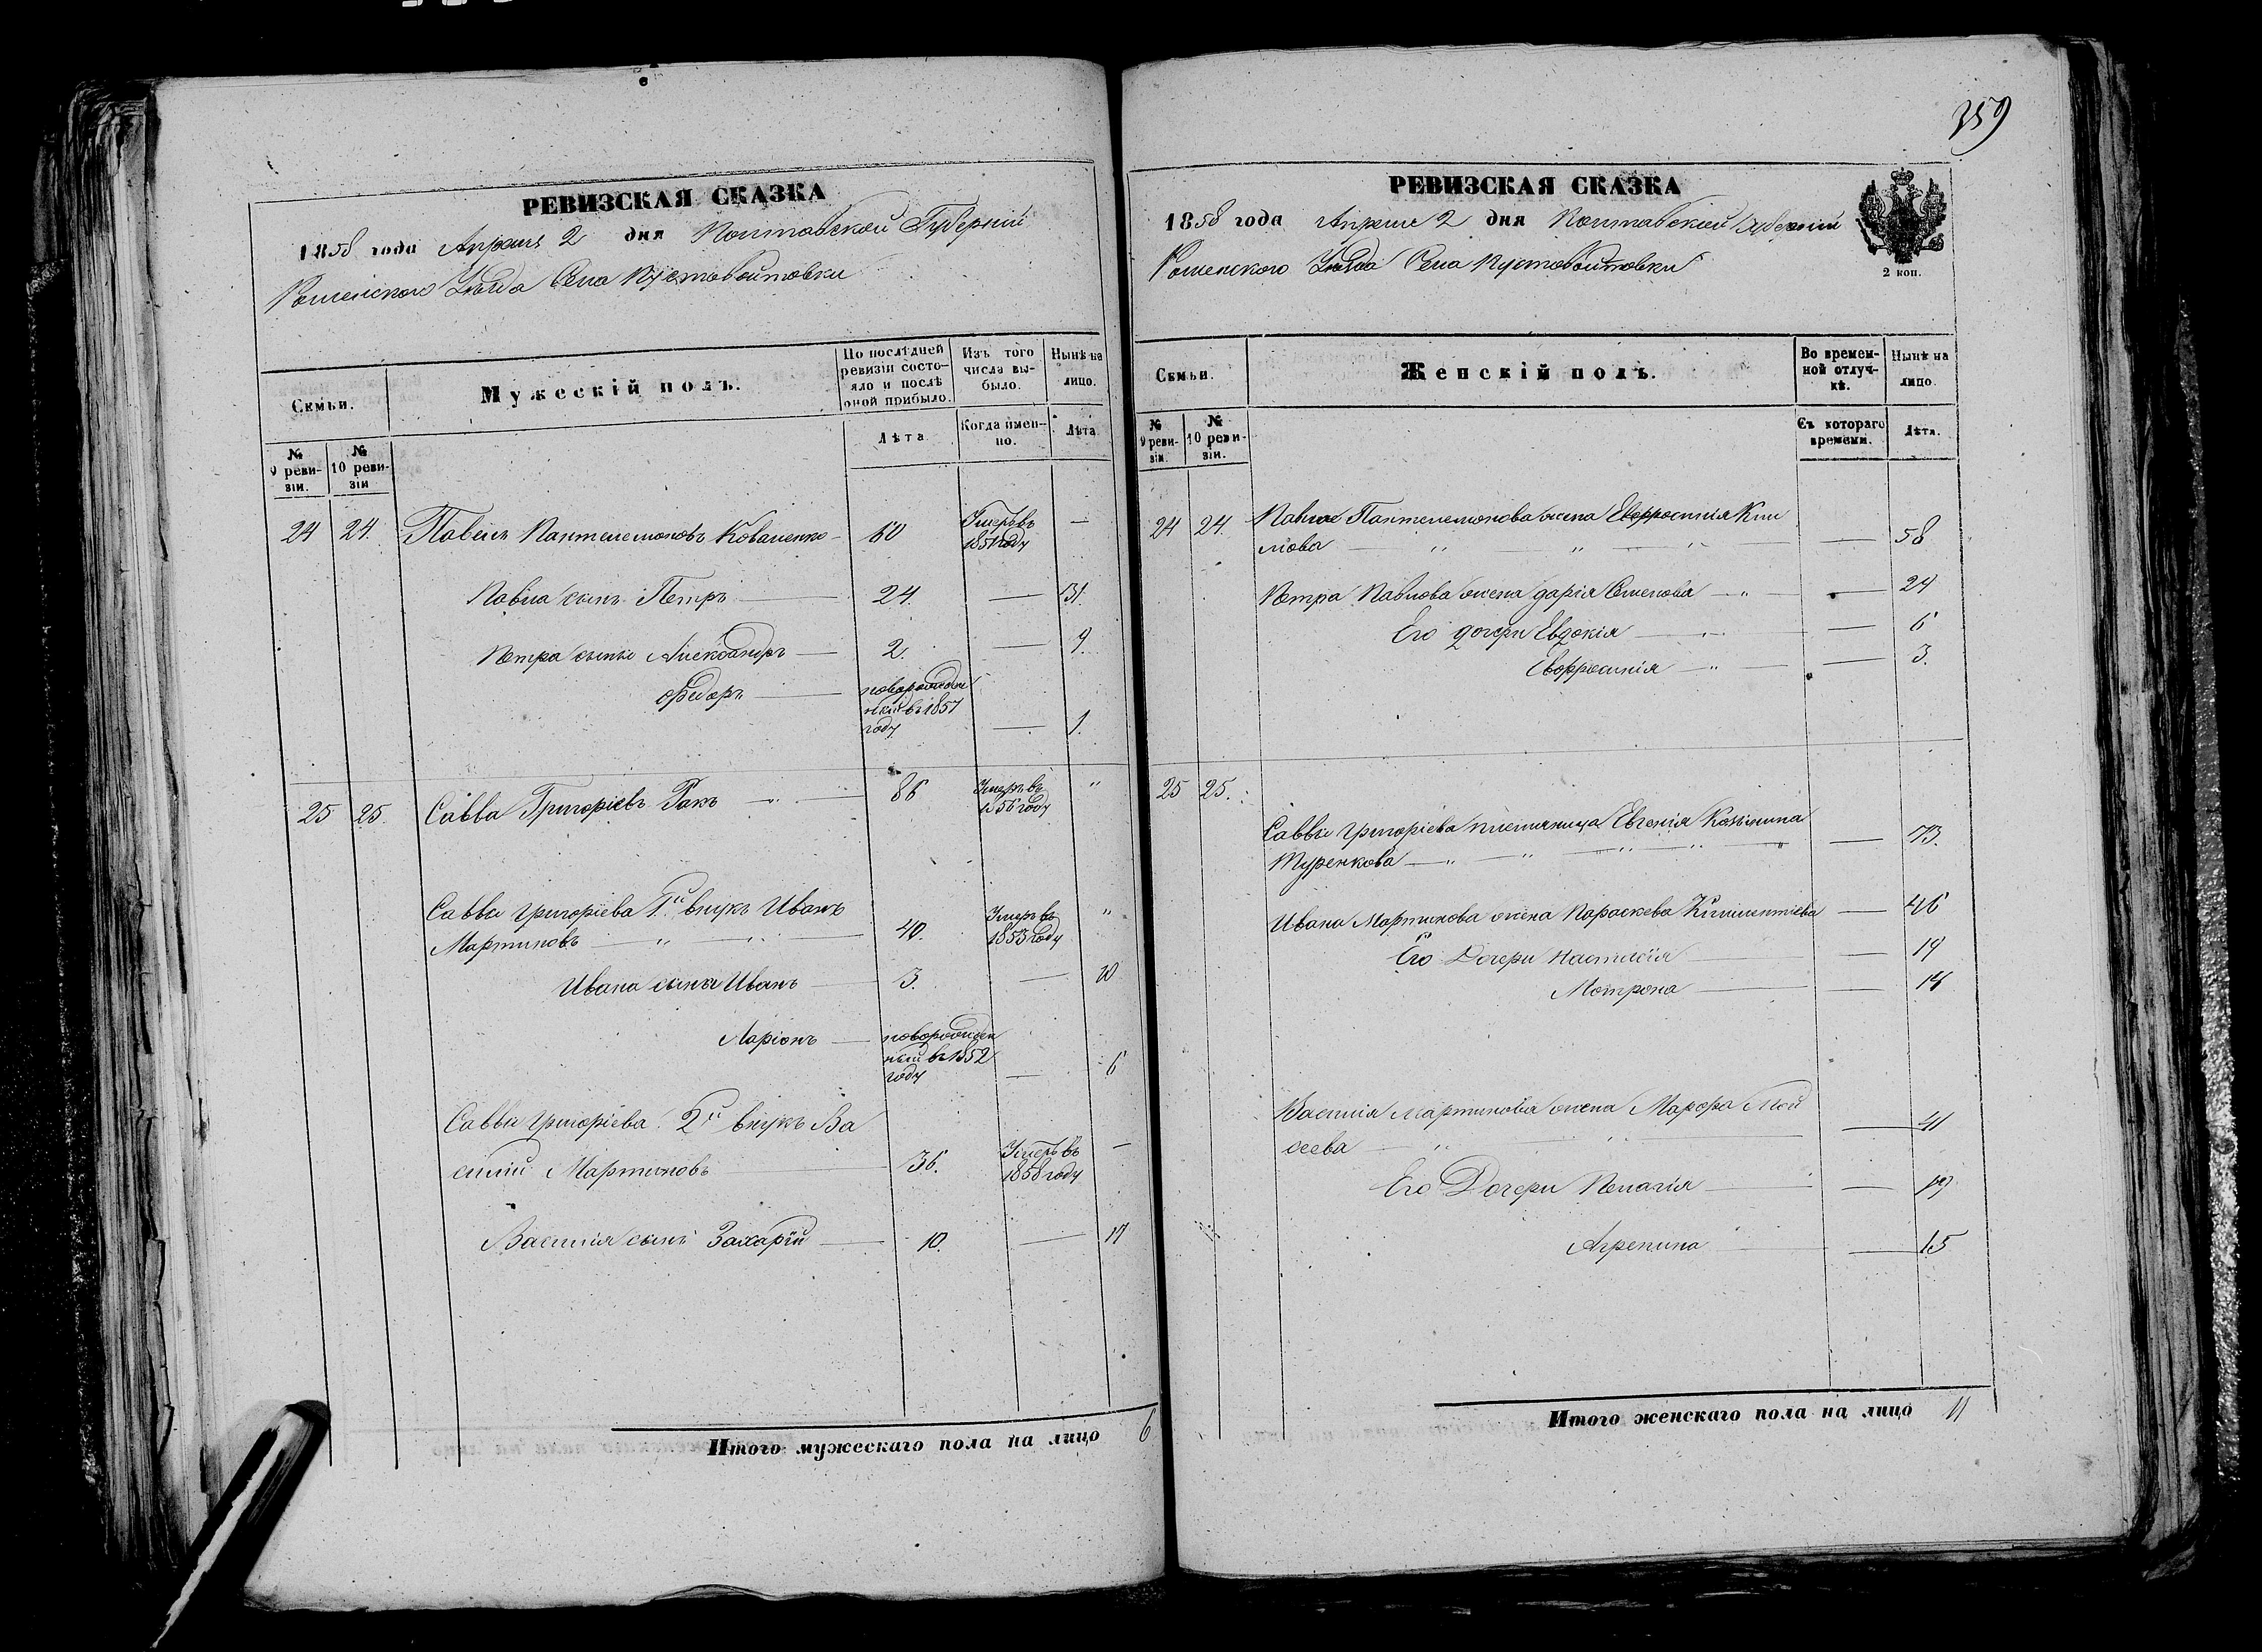 РЕВИЗСКАЯ СКАЗКА
1858 года Апреля 2 дня Полтавской Губерніи
Роменского Уѣзда Села Пустовойтовки
Семьи.
Мужескій полъ.
По послѣдней ревизіи состояло и послѣ оной прибыло.
Изъ того числа выбыло.
Нынѣ на лицо.
№ 9 ревизіи.
№ 10 ревизіи
Лѣта
Когда именно.
Лѣта
24 24. Павелъ Пантелемоновъ Коваленко 60 Умеръ въ 1851 году —
Павла сынъ Петръ 24. — 31.
Петра сыны Александръ 2. — 9.
Федоръ новорожденный въ 1857 году — 1.
25 25. Савва Григоріевъ Ракъ 86 Умеръ въ 1856 году "
Саввы Григоріева 1й внукъ Иванъ
Мартиновъ 40. Умеръ въ 1853 году "
Ивана сыны Иванъ 3. — 10
Ларіонъ новорожденный въ 1852 году — 6
Саввы Григоріева 2й внукъ Ва
силій Мартиновъ 36. Умеръ въ 1858 году —
Василія сынъ Захарій 10. — 17
Итого мужескаго пола на лицо 6
359
РЕВИЗСКАЯ СКАЗКА
1858 года Апреля 2 дня Полтавской Губерніи
Роменского Уѣзда Села Пустовойтовки
2 коп.
Семьи.
Женскій полъ.
Во временной отлучкѣ.
Нынѣ на лицо.
№ 9 ревизіи.
№ 10 ревизіи.
Съ котораго времени.
Лѣта.
24 24. Павла Пантелемонова жена Евфросинія Кли
мова — 58
Петра Павлова жена Дарія Семенова — 24
Его дочери Евдокія — 6
Евфросинія — 3.
25 25.
Саввы Григоріева племяница Евгенія Козьмина
Туренкова — 73.
Ивана Мартинова жена Параскева Климентіева — 46
Его Дочери Настасія — 19
Мотрона — 14
Василія Мартинова жена Марфа Мой
сеева — 41
Его Дочери Пелагія — 19
Агрепина — 15
Итого женскаго пола на лицо 11